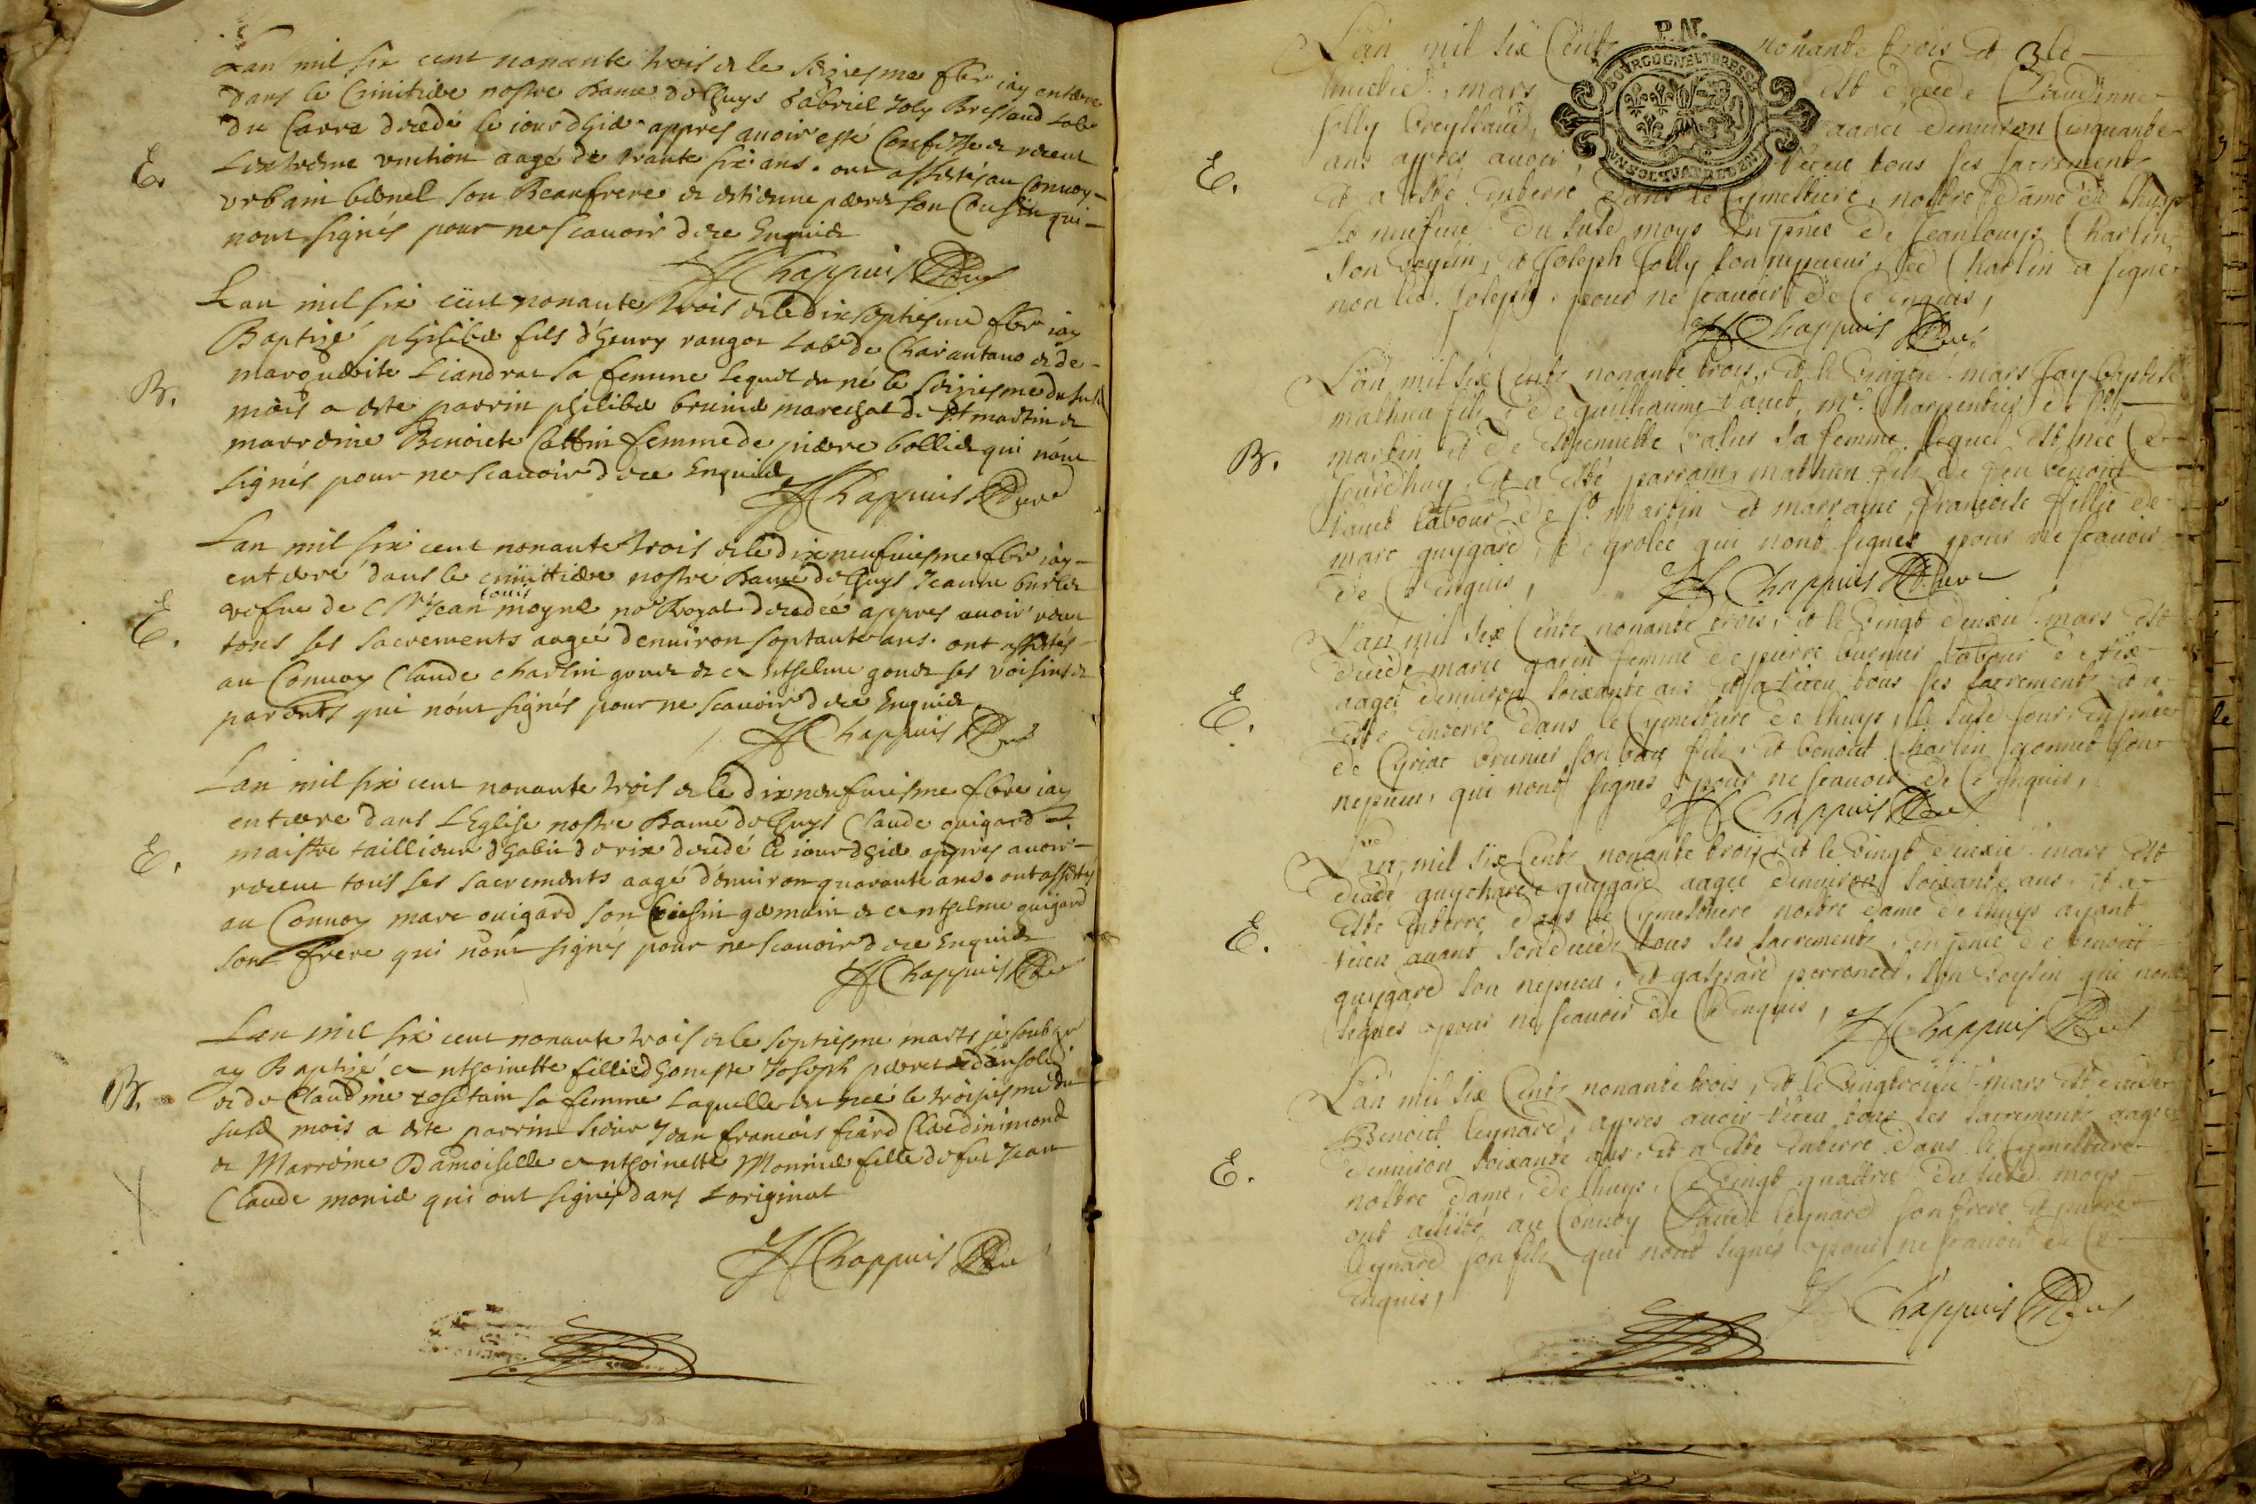 Lan mil six cent nonante trois et le seiziesme fbr iay enterre
dans le Cimitiere nostre Dame de Lhuys Gabriel Joly Bressand lab
du Carre decedé le iourdhier appres auoir esté Confesse et receut
Lextreme unction aagé de trante six ans. ont assistés au Conuoy
urbain beonel son Beaufrere et estienne son Cousin qui
nont signés pour ne scauoir de ce Enquis
E.
JF Chappuis Curé
Lan mil six cent nonante trois et le dix septiesme fbr iay
Baptizé philibe fils dhenry rangot lab de Charantano et de
marguerite Liandrat sa femme lequel est né le seiziesme du susd
mois a este parrin philibe brunie marechal de st martin et
marreine Benoicte Cattin femme de pierre bollie qui nont
signés pour ne scauoir de ce Enquis
B.
JF Chappuis Curé
Lan mil six cent nonante trois et le dixneufuiesme fbr iay
enterré dans le cimittiere nostre Dame de Lhuys Jeanne
vefue de Sr Jean louis moyne nore Royal decedeé appres auoir receut
tous ses sacrements aageé denuiron septante ans. ont assistés
au Conuoy Claude Charlin gonet et Anthelme gonet ses voisins et
parents qui nont signés pour ne scauoir de ce Enquis
E.
JF Chappuis Curé
Lan mil six cent nonante trois et le dixneufuiesme fbre iay
enterre dans LEglise nostre Dame de Lhuys Claude guigard
maistre taillieur dhabit decedé le iourdhier appres auoir
receut tous ses sacrements aagé denuiron quarante ans. ont assistés
au Conuoy marc guigard son Cousin germain et Anthelme guigard
son frere qui nont signés pour ne scauoir de ce Enquis
E.
JF Chappuis Curé
Lan mil six cent nonante trois et le septiesme marts je soubzne
ay Baptizé Anthoinette fillie dhoneste Joseph
et de Claudine rosetain sa femme laquelle est neé le troisiesme du
susd mois a este parrin sieur Jean francois fiard
et Marreine Damoiselle Anthoinette Monnie fille de feu Jean
Claude monie qui ont signés dans Loriginal
B.
JF Chappuis Curé
P.N.
BOURGOGNE ET BRESSE
UN SOL QUATRE DEN
3
Lan mil six Cents nonante trois et le
huictie mars est decede Claudinne
Jolly breyssaud, aagee denuiron Cinquante
ans appres auoir receu tous ses sacrements
et a esté Enterré Dans le Cymettiere, nostre dame de Lhuys
Le neufuie du susd moys En pnce de Jean louys Charlin
son voysin, et Joseph Jolly son nepueu, led Charlin a signe
non led. Joseph, pour ne scauoir de ce enquis,
E.
JF Chappuis Curé
Lan mil six Cents nonante trois, et le vingtie mars Jay baptisé
mathieu fils de guilliaume Vauet, me Charpentier de St
martin et de Estiennette Valier sa femme lequel est neé Ce
Jourdhuy, Et a esté parrain, mathieu fils de feu benoict
Vauet labour de St martin et marraine, francoise fillie de
marc guygard, de grolee qui nont signes pour ne scauoir
de Ce enquis,
B.
JF Chappuis Curé
Lan mil six Cents nonante trois, et le vingt deuxie mars est
decede marie garin femme de pierre labour
aagee denuiron soixante ans et a receu tous ses sacrements et a
este Enterre dans le Cymettiere de lhuys, le susd Jour, En pnce
de Cyriac brunier son beau fils, et benoict Charlin gonnet son
nepueu, qui nont signes pour ne scauoir de Ce Enquis,
E.
JF Chappuis Curé
Lan mil six Cents nonante trois et le vingt deuxie mars est
decede guycharde guygard aagee denuiron soixante ans et a
este Enterre dans le Cymettiere nostre dame de lhuys ayant
receu auant son deced tous ses sacrements, En pnce de benoict
guygard son nepueu, et gaspard perronet, son voysin qui nont
signés pour ne scauoir de Ce Enquis,
E.
JF Chappuis Curé
Lan mil six Cents nonante trois, et le vingtroisie mars est decede
Benoict leynard, appres auoir receu tous ses sacrements aagé
denuiron soixante ans, et a este Enterre dans le Cymettiere
nostre dame, de lhuys, Le vingt quattrie du susd moys
ont assisté au Conuoy Claude leynard son frere et pierre
leynard son fils qui nont signés pour ne scauoir de Ce
Enquis,
E.
JF Chappuis Curé